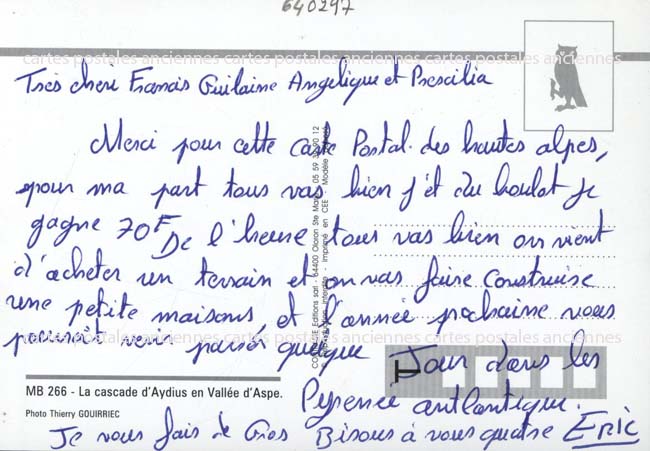 640297
cartes postales anciennes cartes postales anciennes cartes postales anciennes
Très chere Francis Guilaine Angelique et Prescilia
Merci pour cette Carte Postal des hautes alpes,
pour ma part tous vas bien j'ét du boulot je
gagne 70F De l'heure tous vas bien on vient
d'acheter un terrain et on vas faire construise
une petite maisons, et l'année prochaine vous
pourroit venir passér quelque Jour dans les
cartes postales anciennes cartes postales anciennes cartes postales anciennes
MB 266 - La cascade d'Aydius en Vallée d'Aspe.
Pyrenée antlantique.
Photo Thierry GOUIRRIEC
Je vous fais de Gros Bisous à vous quatre Eric
Editions sarl - 64400 Oloron Ste Marie
imprimé en CEE - Modèle